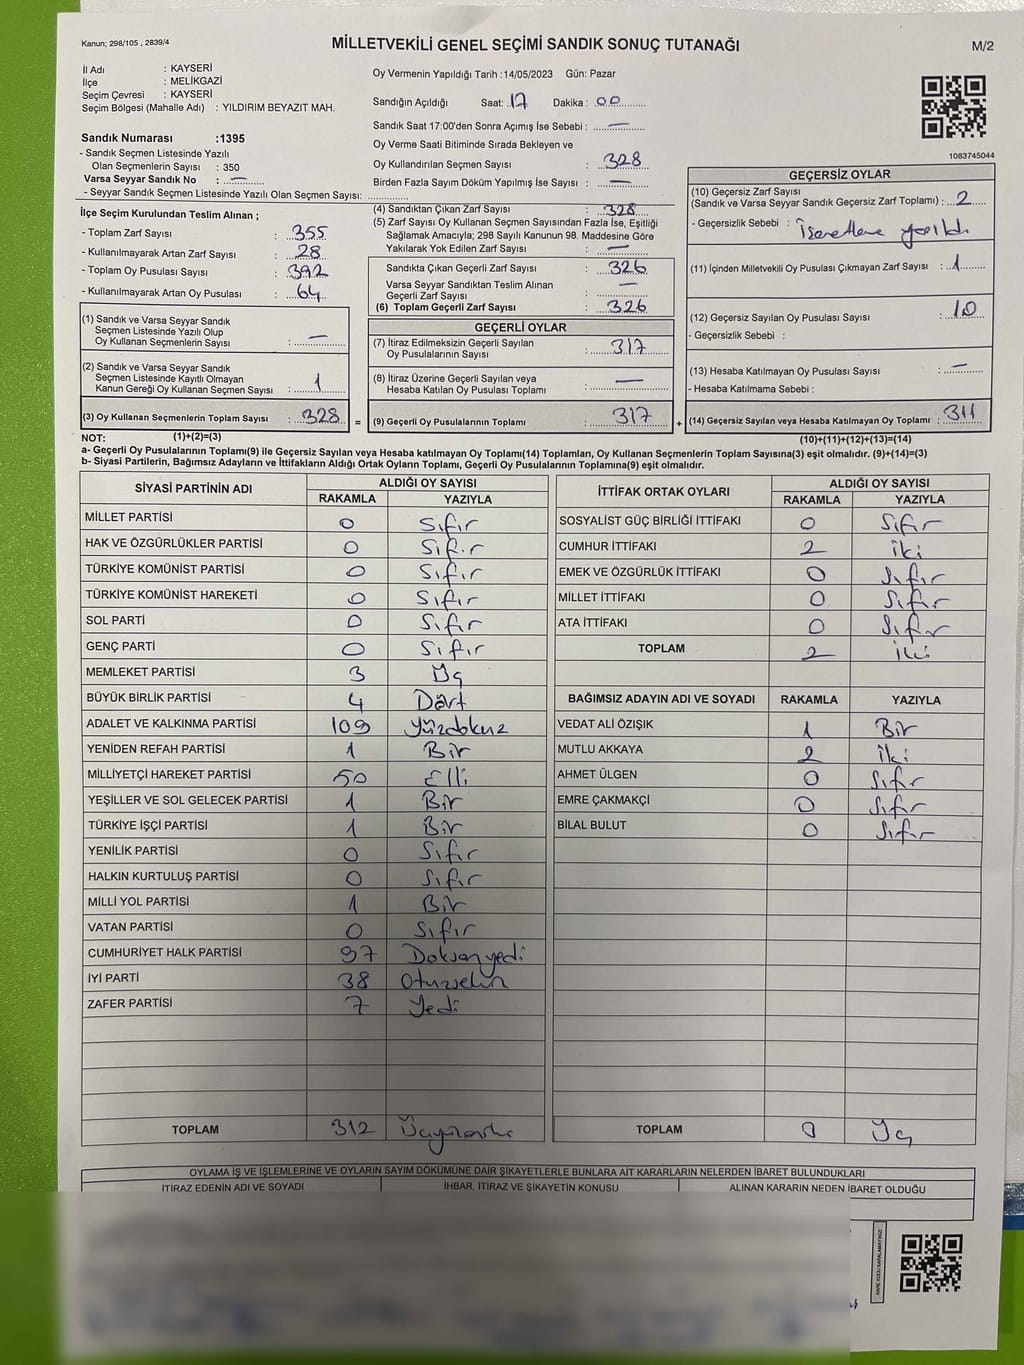 Kanun; 298/105 , 2839/4
MİLLETVEKİLİ GENEL SEÇİMİ SANDIK SONUÇ TUTANAĞI
M/2
İl Adı : KAYSERİ
İlçe : MELİKGAZİ
Seçim Çevresi : KAYSERİ
Seçim Bölgesi (Mahalle Adı) : YILDIRIM BEYAZIT MAH.
Sandık Numarası :1395
- Sandık Seçmen Listesinde Yazılı
Olan Seçmenlerin Sayısı : 350
Varsa Seyyar Sandık No : —
- Seyyar Sandık Seçmen Listesinde Yazılı Olan Seçmen Sayısı:
Oy Vermenin Yapıldığı Tarih :14/05/2023 Gün: Pazar
Sandığın Açıldığı Saat: 17 Dakika : 00
Sandık Saat 17:00'den Sonra Açımış İse Sebebi : —
Oy Verme Saati Bitiminde Sırada Bekleyen ve
Oy Kullandırılan Seçmen Sayısı : 328
Birden Fazla Sayım Döküm Yapılmış İse Sayısı : —
1083745044
İlçe Seçim Kurulundan Teslim Alınan ;
- Toplam Zarf Sayısı : 355
- Kullanılmayarak Artan Zarf Sayısı : 28
- Toplam Oy Pusulası Sayısı : 392
- Kullanılmayarak Artan Oy Pusulası : 64
(1) Sandık ve Varsa Seyyar Sandık
Seçmen Listesinde Yazılı Olup
Oy Kullanan Seçmenlerin Sayısı : —
(2) Sandık ve Varsa Seyyar Sandık
Seçmen Listesinde Kayıtlı Olmayan
Kanun Gereği Oy Kullanan Seçmen Sayısı : 1
(3) Oy Kullanan Seçmenlerin Toplam Sayısı : 328 =
(4) Sandıktan Çıkan Zarf Sayısı : 328
(5) Zarf Sayısı Oy Kullanan Seçmen Sayısından Fazla İse, Eşitliği
Sağlamak Amacıyla; 298 Sayılı Kanunun 98. Maddesine Göre
Yakılarak Yok Edilen Zarf Sayısı : —
Sandıkta Çıkan Geçerli Zarf Sayısı : 326
Varsa Seyyar Sandıktan Teslim Alınan
Geçerli Zarf Sayısı : —
(6) Toplam Geçerli Zarf Sayısı : 326
GEÇERLİ OYLAR
(7) İtiraz Edilmeksizin Geçerli Sayılan
Oy Pusulalarının Sayısı : 317
(8) İtiraz Üzerine Geçerli Sayılan veya
Hesaba Katılan Oy Pusulası Toplamı : —
(9) Geçerli Oy Pusulalarının Toplamı : 317 +
GEÇERSİZ OYLAR
(10) Geçersiz Zarf Sayısı
(Sandık ve Varsa Seyyar Sandık Geçersiz Zarf Toplamı) : 2
- Geçersizlik Sebebi : İşaretleme yapıldı
(11) İçinden Milletvekili Oy Pusulası Çıkmayan Zarf Sayısı : 1
(12) Geçersiz Sayılan Oy Pusulası Sayısı : 10
- Geçersizlik Sebebi :
(13) Hesaba Katılmayan Oy Pusulası Sayısı : —
- Hesaba Katılmama Sebebi :
(14) Geçersiz Sayılan veya Hesaba Katılmayan Oy Toplamı : 311
NOT: (1)+(2)=(3) (10)+(11)+(12)+(13)=(14)
a- Geçerli Oy Pusulalarının Toplamı(9) ile Geçersiz Sayılan veya Hesaba katılmayan Oy Toplamı(14) Toplamları, Oy Kullanan Seçmenlerin Toplam Sayısına(3) eşit olmalıdır. (9)+(14)=(3)
b- Siyasi Partilerin, Bağımsız Adayların ve İttifakların Aldığı Ortak Oyların Toplamı, Geçerli Oy Pusulalarının Toplamına(9) eşit olmalıdır.
SİYASİ PARTİNİN ADI ALDIĞI OY SAYISI
RAKAMLA YAZIYLA
MİLLET PARTİSİ 0 Sıfır
HAK VE ÖZGÜRLÜKLER PARTİSİ 0 Sıfır
TÜRKİYE KOMÜNİST PARTİSİ 0 Sıfır
TÜRKİYE KOMÜNİST HAREKETİ 0 Sıfır
SOL PARTİ 0 Sıfır
GENÇ PARTİ 0 Sıfır
MEMLEKET PARTİSİ 3 Üç
BÜYÜK BİRLİK PARTİSİ 4 Dört
ADALET VE KALKINMA PARTİSİ 109 Yüzdokuz
YENİDEN REFAH PARTİSİ 1 Bir
MİLLİYETÇİ HAREKET PARTİSİ 50 Elli
YEŞİLLER VE SOL GELECEK PARTİSİ 1 Bir
TÜRKİYE İŞÇİ PARTİSİ 1 Bir
YENİLİK PARTİSİ 0 Sıfır
HALKIN KURTULUŞ PARTİSİ 0 Sıfır
MİLLİ YOL PARTİSİ 1 Bir
VATAN PARTİSİ 0 Sıfır
CUMHURİYET HALK PARTİSİ 97 Doksanyedi
İYİ PARTİ 38 Otuzsekiz
ZAFER PARTİSİ 7 Yedi
TOPLAM 312
İTTİFAK ORTAK OYLARI ALDIĞI OY SAYISI
RAKAMLA YAZIYLA
SOSYALİST GÜÇ BİRLİĞİ İTTİFAKI 0 Sıfır
CUMHUR İTTİFAKI 2 İki
EMEK VE ÖZGÜRLÜK İTTİFAKI 0 Sıfır
MİLLET İTTİFAKI 0 Sıfır
ATA İTTİFAKI 0 Sıfır
TOPLAM 2 İki
BAĞIMSIZ ADAYIN ADI VE SOYADI RAKAMLA YAZIYLA
VEDAT ALİ ÖZIŞIK 1 Bir
MUTLU AKKAYA 2 İki
AHMET ÜLGEN 0 Sıfır
EMRE ÇAKMAKÇİ 0 Sıfır
BİLAL BULUT 0 Sıfır
TOPLAM Üç
OYLAMA İŞ VE İŞLEMLERİNE VE OYLARIN SAYIM DÖKÜMÜNE DAİR ŞİKAYETLERLE BUNLARA AİT KARARLARIN NELERDEN İBARET BULUNDUKLARI
İTİRAZ EDENİN ADI VE SOYADI İHBAR, İTİRAZ VE ŞİKAYETİN KONUSU ALINAN KARARIN NEDEN İBARET OLDUĞU